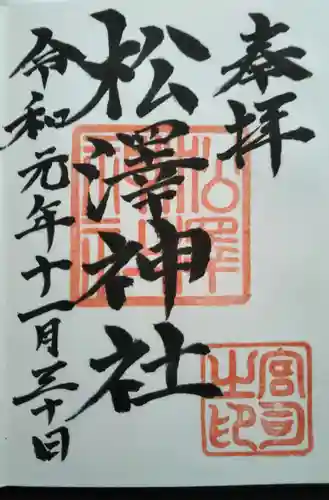 奉拝
松澤神社
令和元年十一月三十日
松澤神社
宮司之印